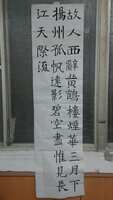 故人西辭黃鶴樓煙華三月下
揚州孤帆遠影碧空盡惟見長
江天際流